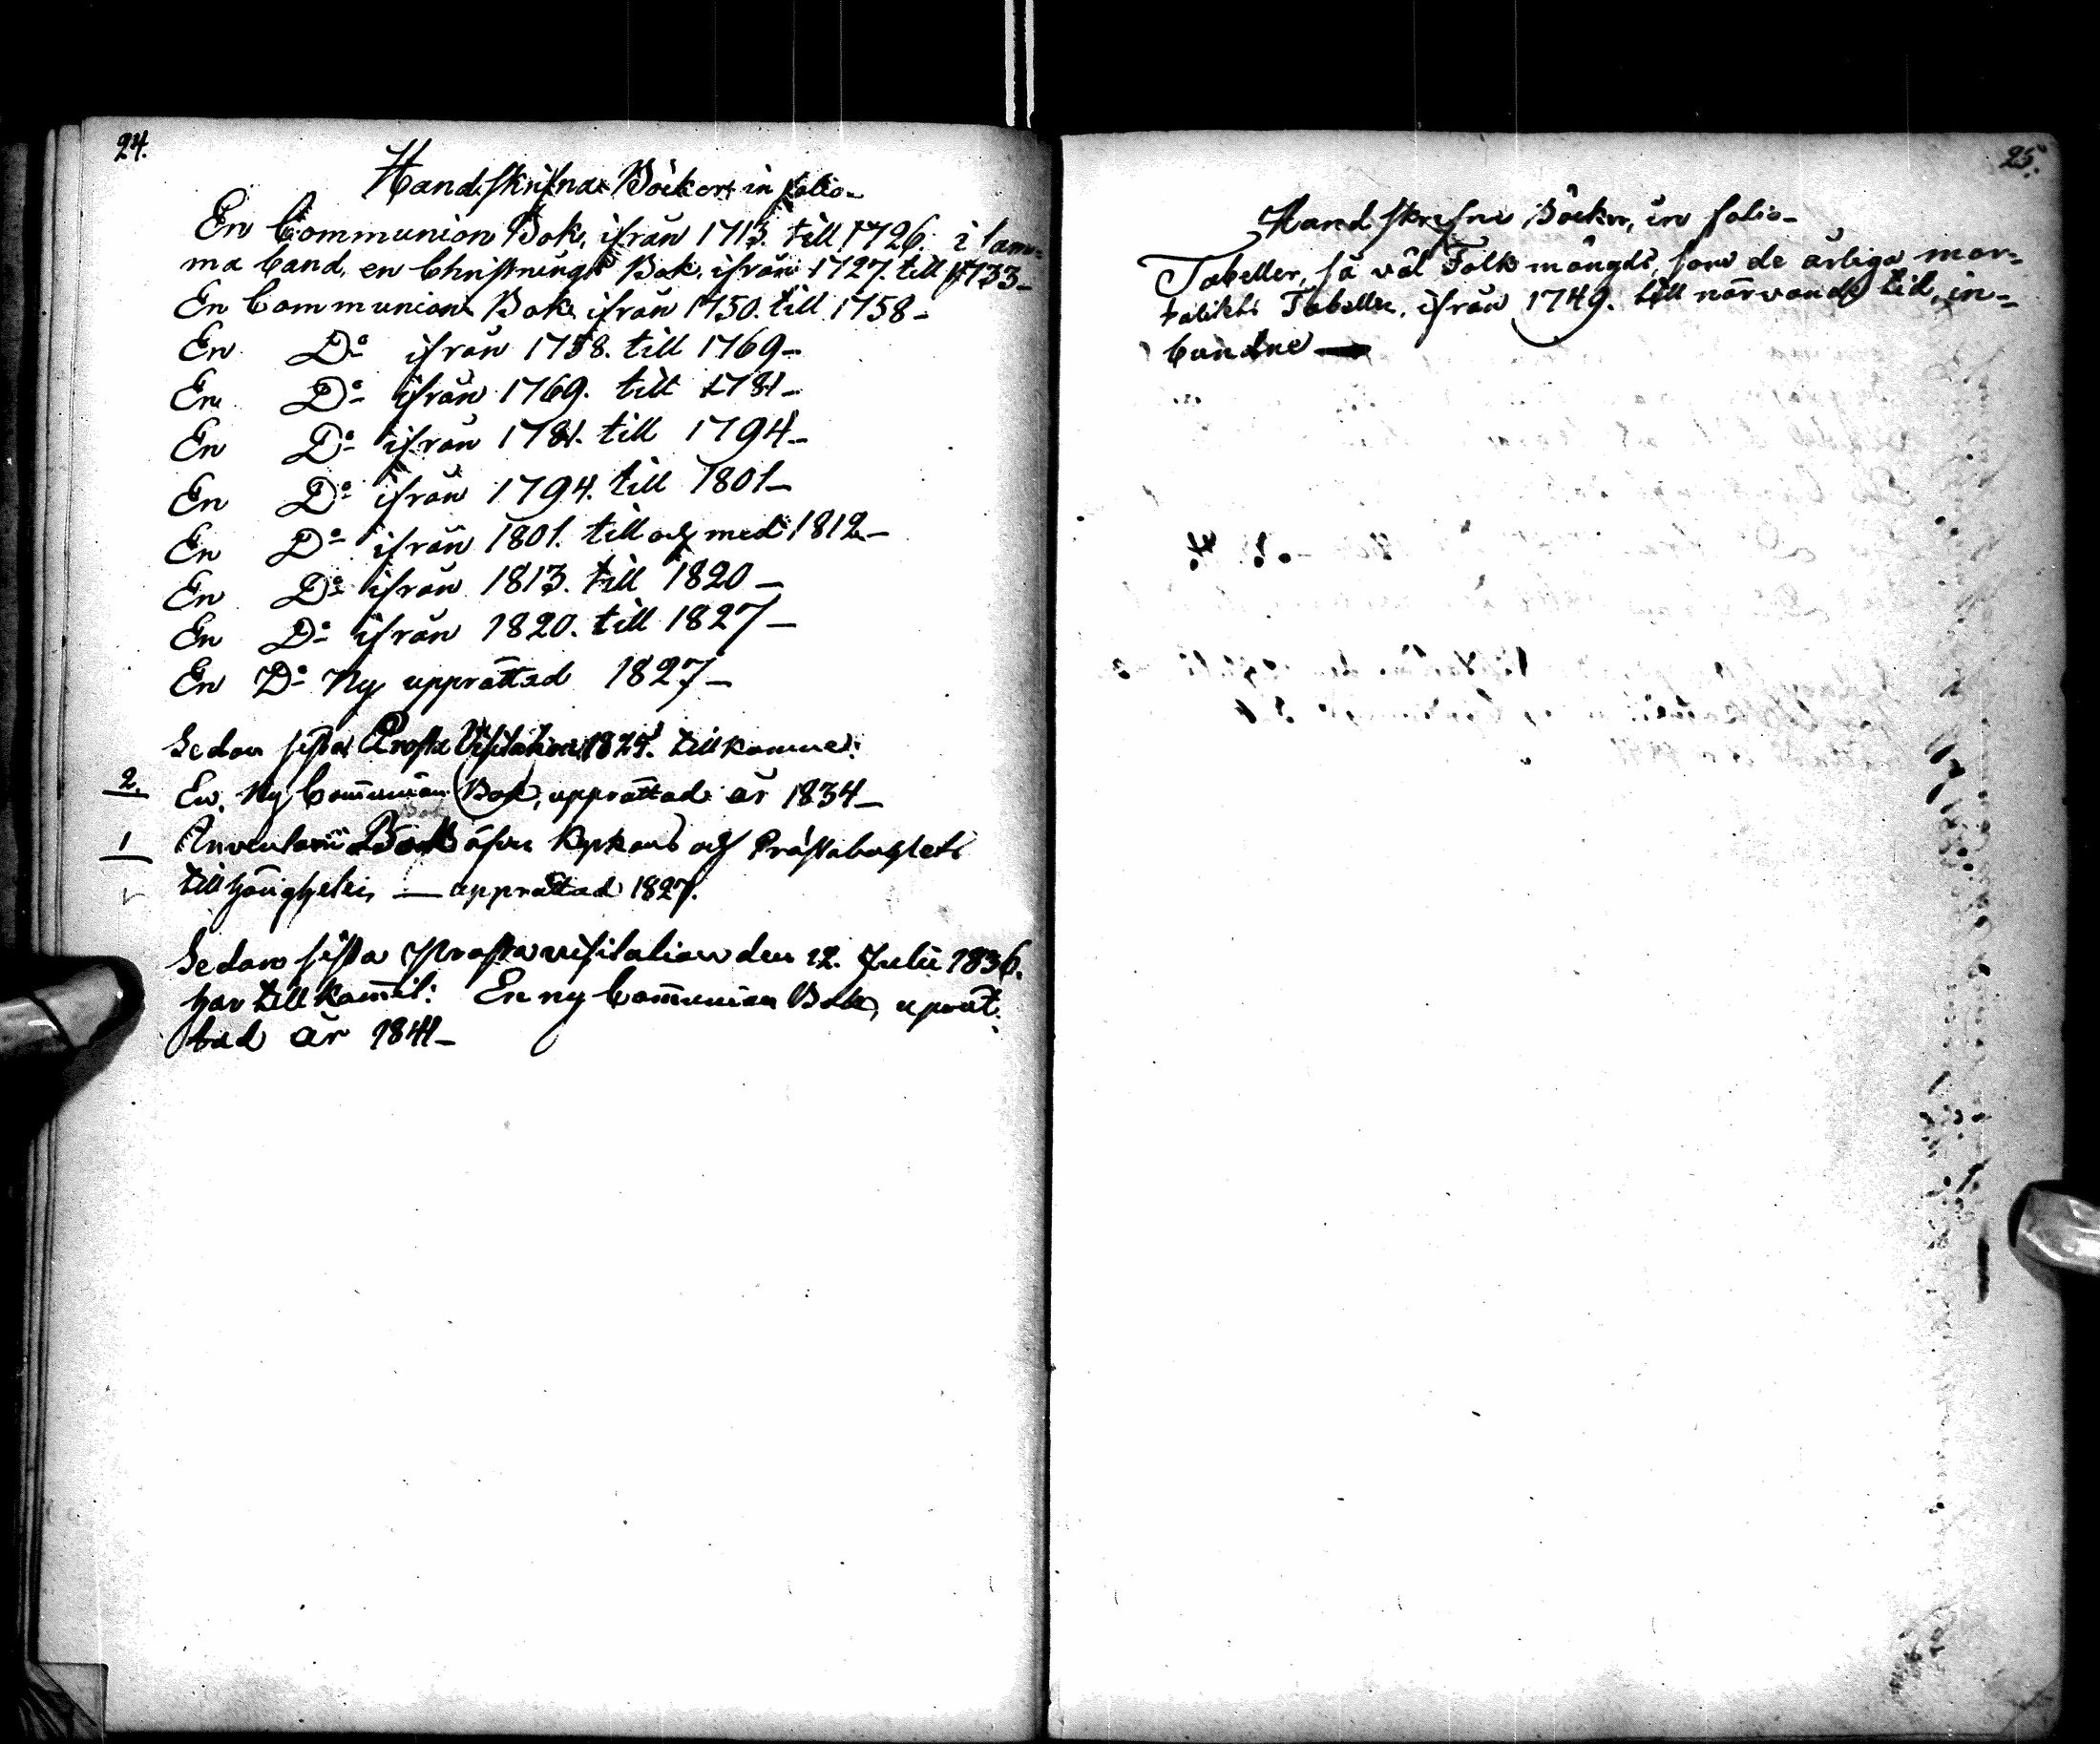 24.
Handskrifna Böcker in folio-
En Communion Bok, ifrån 1713. till 1726. i sam-
ma band, en Christnings Bok, ifrån 1727. till 1733-
En Communion Bok ifrån 1750. till 1758-
En Do ifrån 1758. till 1769-
En Do ifrån 1769. till 1781-
En Do ifrån 1781. till 1794-
En Do ifrån 1794. till 1801-
En Do ifrån 1801. till och med 1812-
En Do ifrån 1813. till 1820-
En Do ifrån 1820. till 1827-
En Do Ny upprättad 1827-
Sedan sista Prosta Visitation tillkomne:
2. En Ny Com̄union Bok, upprättad år 1834-
1 Inventarii Bok öfver Kyrkans och Prästabohlets
tillhörigheter — upprättad 1827.
Sedan sista Prostavisitation den 12. Julii 1836.
har tillkom̄it: En ny Com̄union Bok, uprät-
tad år 1841-
25.
Handskrefne Böcker, in folio-
Tabeller, så väl Folkmängds, som de årliga mor-
talitets Tabeller, ifrån 1749. till närvarande tid, in-
bundne —